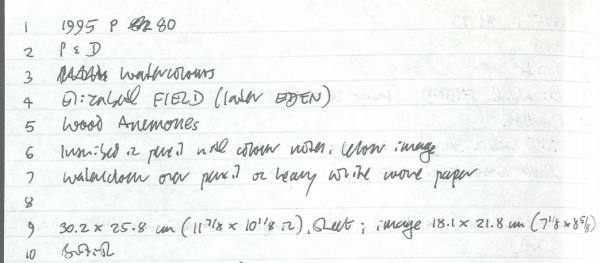 1 1995 P 80
2 P & D
3 watercolours
4 Elizabeth FIELD (later EDEN)
5 Wood Anemones
6 Inscribed in pencil with colour notes, below image
7 watercolour over pencil on heavy white wove paper
8
9 30.2 x 25.8 cm (11 7/8 x 10 1/8 in), sheet; image 18.1 x 21.8 cm (7 1/8 x 8 5/8)
10 British